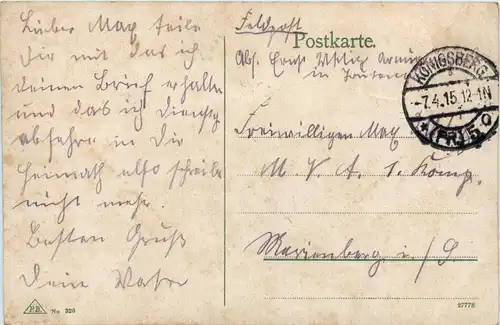 Lieber Max teile
Dir mit das ich
deinen Brief erhalten
und das ich Dienstag
abfahre in die
Heimath also schreibe
nicht mehr.
Besten Gruß
Dein Vater
Feldpost
Postkarte.
Abs. Ernst
in
KÖNIGSBERG
-7.4.15.12-1N
*(PR)5 O
Freiwilligen Max
M. K. A. 1. Komp.
Marienberg i/S.
P.R. No 326
27778